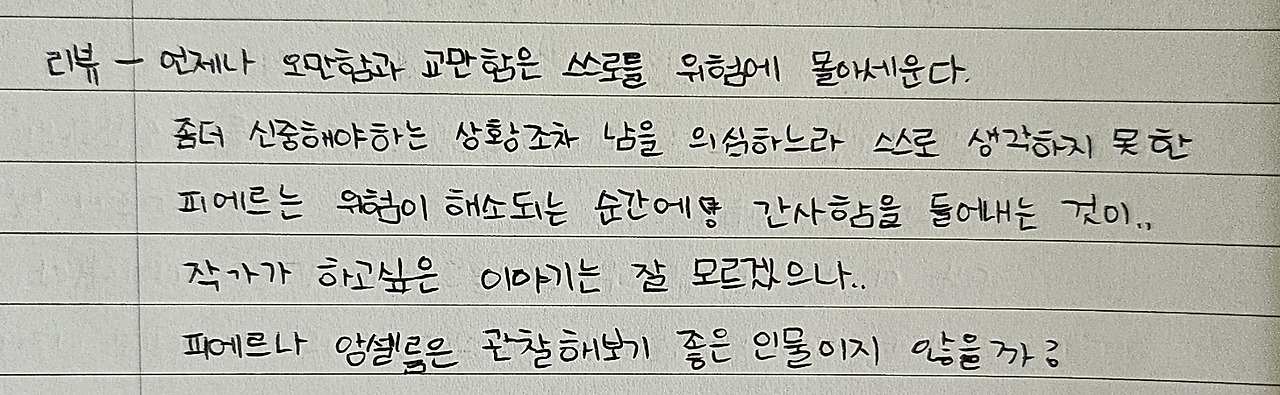 리뷰 - 언제나 오만함과 교만함은 쓰로를 위험에 몰아세운다.
좀더 신중해야하는 상황조차 남을 의심하느라 스스로 생각하지 못한
피에르는 위험이 해소되는 순간에 간사함을 들어내는 것이..
작가가 하고싶은 이야기는 잘 모르겠으나..
피에르나 암셀름은 관찰해보기 좋은 인물이지 않을까?